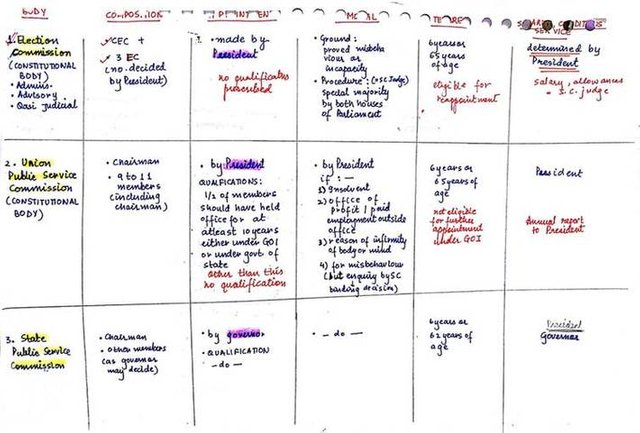 BODY
COMPOSITION
REMOVAL
TENURE
SALARY, CONDITIONS
SERVICE
1. Election
Commission
(CONSTITUTIONAL
BODY)
• Admins.
• Advisory
• Qasi Judicial
• CEC +
• 3 EC
(no. decided
by President)
• made by
President
no qualificatns
prescribed
• Ground:
proved misbeha
viour or
incapacity
• Procedure: (as SC Judge)
special majority
by both houses
of Parliament
6 years or
65 years
of age
eligible for
reappointment
determined by
President
salary, allowances
= S.C. judge
2. Union
Public Service
Commission
(CONSTITUTIONAL
BODY)
• Chairman
• 9 to 11
members
(including
chairman)
• by President
QUALIFICATIONS:
1/2 of members
should have held
office for at
atleast 10 years
either under GOI
or under govt. of
state
other than this
no qualification
• by President
if : —
1) Insolvent
2) office of
profit / paid
employment outside
office
3) reason of infirmity
of body or mind
4) for misbehaviour
(but enquiry by SC
binding decision)
6 years or
65 years of
age
not eligible
for further
appointment
under GOI
President
Annual report
to President
3. State
Public Service
Commission
• Chairman
• Other members
(as governor
may decide)
• by governor
• QUALIFICATION
— do —
• — do —
6 years or
62 years of
age
President
Governor